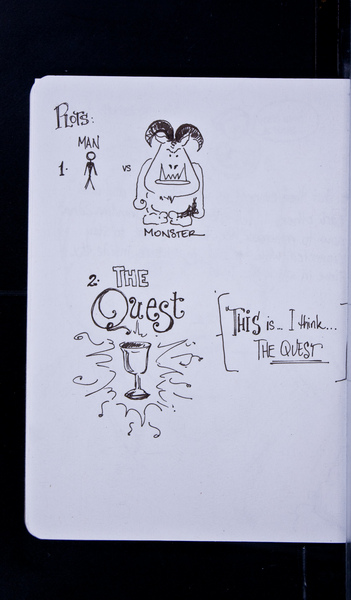 PLOTS:
MAN
1. VS
MONSTER
2. THE
Quest
"THIS is... I think...
THE QUEST